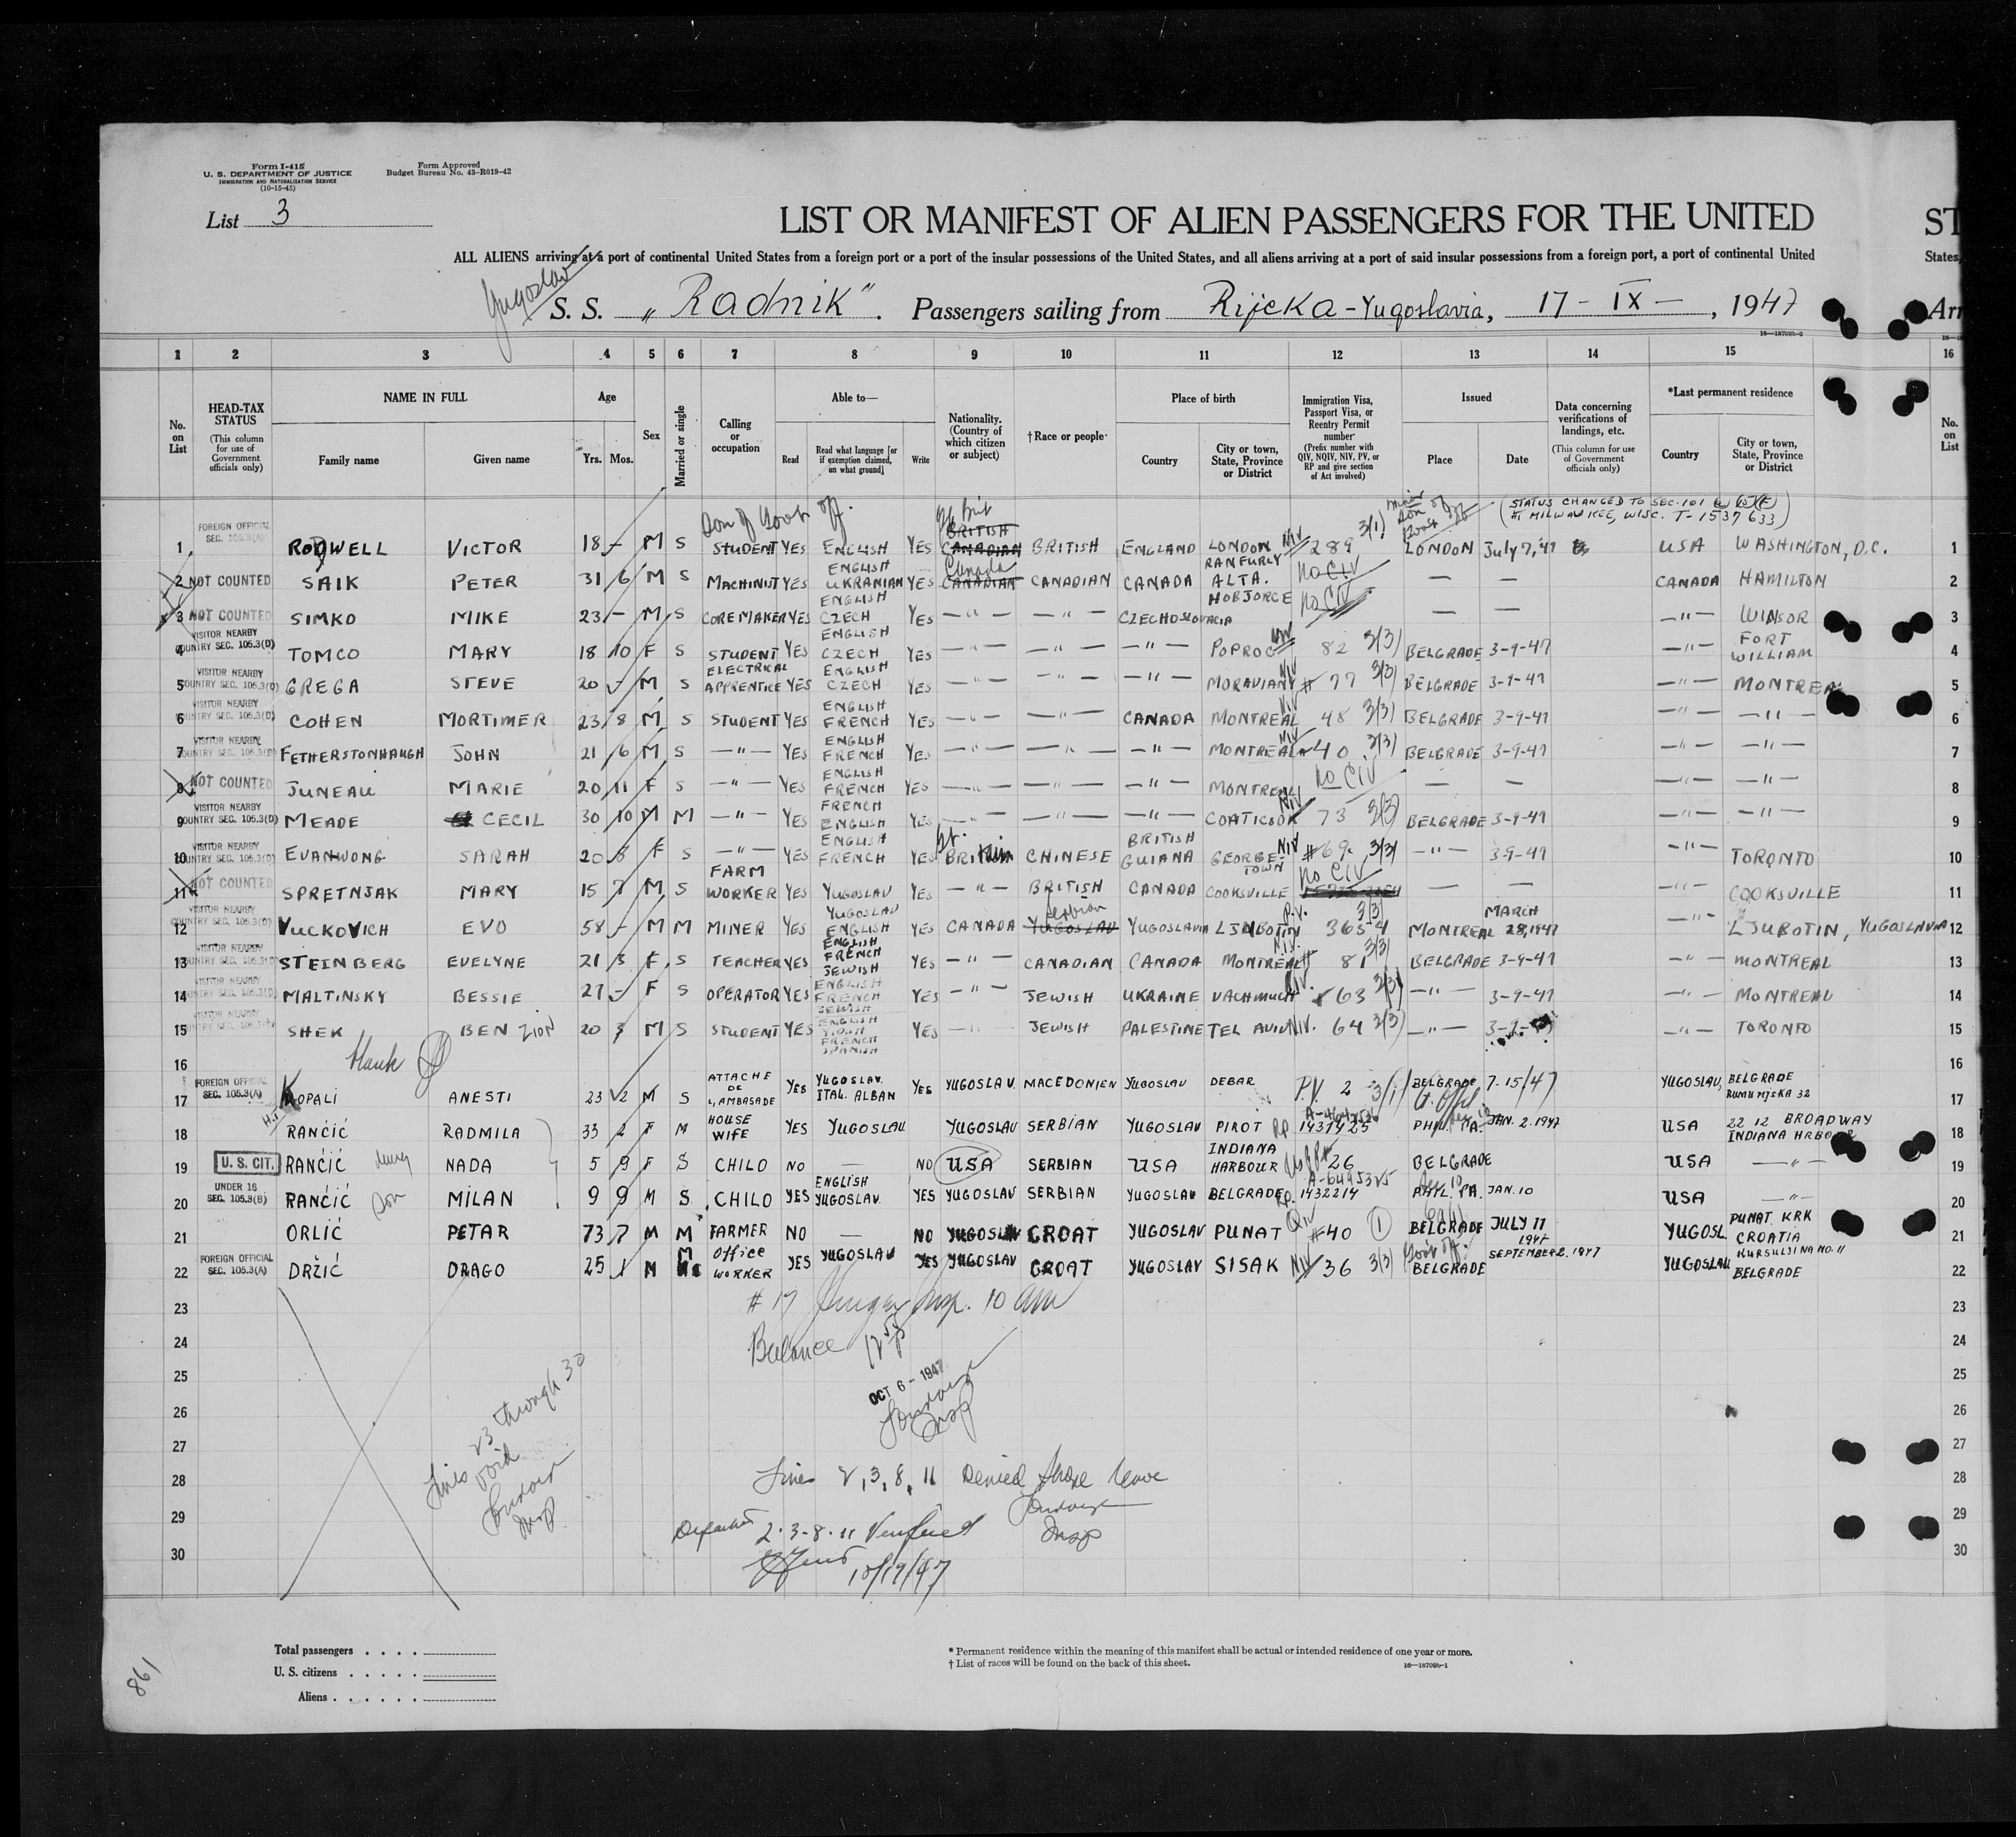 Form I-415
U. S. DEPARTMENT OF JUSTICE
IMMIGRATION AND NATURALIZATION SERVICE
(10-15-45)
Form Approved
Budget Bureau No. 43-R019-42
List 3
LIST OR MANIFEST OF ALIEN PASSENGERS FOR THE UNITED ST
ALL ALIENS arriving at a port of continental United States from a foreign port or a port of the insular possessions of the United States, and all aliens arriving at a port of said insular possessions from a foreign port, a port of continental United States,
Yugoslav
S. S. „Radnik". Passengers sailing from Rijeka-Yugoslavia, 17 - IX -, 1947 Arr
16—18709b-2
1 2 3 4 5 6 7 8 9 10 11 12 13 14 15 16
No. on List
HEAD-TAX STATUS
(This column for use of Government officials only)
NAME IN FULL
Family name
Given name
Age
Yrs. Mos.
Sex
Married or single
Calling or occupation
Able to—
Read
Read what language [or if exemption claimed, on what ground]
Write
Nationality. (Country of which citizen or subject)
†Race or people
Place of birth
Country
City or town, State, Province or District
Immigration Visa, Passport Visa, or Reentry Permit number
(Prefix number with QIV, NQIV, NIV, PV, or RP and give section of Act involved)
Issued
Place
Date
Data concerning verifications of landings, etc.
(This column for use of Government officials only)
*Last permanent residence
Country
City or town, State, Province or District
No. on List
Son of Govt off.
(STATUS CHANGED TO SEC. 101
AT MILWAUKEE, WISC. T-1537633)
1 FOREIGN OFFICIAL SEC. 105.3(A) RODWELL VICTOR 18 - M S STUDENT YES ENGLISH YES BRITISH CANADIAN BRITISH ENGLAND LONDON NIV 289 3/1) LONDON July 7,'47 USA WASHINGTON, D.C. 1
2 NOT COUNTED SAIK PETER 31 6 M S MACHINIST YES ENGLISH UKRANIAN YES Canada CANADIAN CANADIAN CANADA RANFURLY ALTA. No CIV — — CANADA HAMILTON 2
3 NOT COUNTED SIMKO MIKE 23 - M S COREMAKER YES ENGLISH CZECH YES — " — — " — CZECHOSLOVACIA HOBJORCE No CIV — — — " — WINSOR 3
4 VISITOR NEARBY COUNTRY SEC. 105.3(D) TOMCO MARY 18 10 F S STUDENT YES ENGLISH CZECH YES — " — — " — — " — POPROC NIV 82 3/3) BELGRADE 3-9-47 — " — FORT WILLIAM 4
5 VISITOR NEARBY COUNTRY SEC. 105.3(D) GREGA STEVE 20 - M S ELECTRICAL APPRENTICE YES ENGLISH CZECH YES — " — — " — — " — MORAVIANY NIV # 77 3/3) BELGRADE 3-9-47 — " — MONTREAL 5
6 VISITOR NEARBY COUNTRY SEC. 105.3(D) COHEN MORTIMER 23 8 M S STUDENT YES ENGLISH FRENCH YES — " — — " — CANADA MONTREAL NIV 48 3/3) BELGRADE 3-9-47 — " — — " — 6
7 VISITOR NEARBY COUNTRY SEC. 105.3(D) FETHERSTONHAUGH JOHN 21 6 M S — " — YES ENGLISH FRENCH YES — " — — " — — " — MONTREAL NIV 40 3/3) BELGRADE 3-9-47 — " — — " — 7
8 NOT COUNTED JUNEAU MARIE 20 11 F S — " — YES ENGLISH FRENCH YES — " — — " — — " — MONTREAL No CIV — — — " — — " — 8
9 VISITOR NEARBY COUNTRY SEC. 105.3(D) MEADE CECIL 30 10 M M — " — YES FRENCH ENGLISH YES — " — — " — — " — COATICOOK NIV 73 3/3) BELGRADE 3-9-47 — " — — " — 9
10 VISITOR NEARBY COUNTRY SEC. 105.3(D) EVANWONG SARAH 20 F S — " — YES ENGLISH FRENCH YES Gt. Britain CHINESE BRITISH GUIANA GEORGE-TOWN NIV #69. 3/3) — " — 3-9-47 — " — TORONTO 10
11 NOT COUNTED SPRETNJAK MARY 15 7 M S FARM WORKER YES YUGOSLAV YES — " — BRITISH CANADA COOKSVILLE No CIV — — — " — COOKSVILLE 11
12 VISITOR NEARBY COUNTRY SEC. 105.3(D) VUCKOVICH EVO 58 - M M MINER YES YUGOSLAV ENGLISH YES CANADA Serbian YUGOSLAV YUGOSLAVIA LJUBOTIN P.V. 3654 3/3) MONTREAL MARCH 28, 1947 — " — LJUBOTIN, YUGOSLAVIA 12
13 VISITOR NEARBY COUNTRY SEC. 105.3(D) STEINBERG EVELYNE 21 3 F S TEACHER YES ENGLISH FRENCH JEWISH YES — " — CANADIAN CANADA MONTREAL NIV. # 81 3/3) BELGRADE 3-9-47 — " — MONTREAL 13
14 VISITOR NEARBY COUNTRY SEC. 105.3(D) MALTINSKY BESSIE 27 - F S OPERATOR YES ENGLISH FRENCH JEWISH YES — " — JEWISH UKRAINE VACHMUCH NIV. 63 3/3) — " — 3-9-47 — " — MONTREAL 14
15 VISITOR NEARBY SHEK BEN ZION 20 M S STUDENT YES ENGLISH YIDISH FRENCH SPANISH YES — " — JEWISH PALESTINE TEL AVIV NIV. 64 3/3) — " — 3-9- — " — TORONTO 15
16 Hank 16
17 FOREIGN OFFICIAL SEC. 105.3(A) KOPALI ANESTI 23 2 M S ATTACHE DE L, AMBASADE YES YUGOSLAV. ITAL. ALBAN YES YUGOSLAV MACEDONIEN YUGOSLAV DEBAR P.V. 2 3/1) BELGRADE 7.15/47 YUGOSLAV, BELGRADE RUMUNJSKA 32 17
18 RANČIĆ RADMILA 33 2 F M HOUSE WIFE YES YUGOSLAV YUGOSLAV SERBIAN YUGOSLAV PIROT RP. 1431425 PHIL. PA. JAN. 2. 1947 USA 22 12 BROADWAY INDIANA HRBOUR 18
19 U. S. CIT. RANČIĆ NADA 5 9 F S CHILD NO — NO USA SERBIAN USA INDIANA HARBOUR 26 BELGRADE USA — " — 19
20 UNDER 16 SEC. 105.3(B) RANČIĆ Son MILAN 9 9 M S CHILD YES ENGLISH YUGOSLAV. YES YUGOSLAV SERBIAN YUGOSLAV BELGRADE RP. A-6495325 1432214 PHYL. PA. JAN. 10 USA — " — 20
21 ORLIĆ PETAR 73 7 M M FARMER NO — NO YUGOSLAV CROAT YUGOSLAV PUNAT QIV #40 1 BELGRADE JULY 11 1947 YUGOSL. PUNAT KRK CROATIA 21
22 FOREIGN OFFICIAL SEC. 105.3(A) DRŽIĆ DRAGO 25 1 M M Office WORKER YES YUGOSLAV YES YUGOSLAV CROAT YUGOSLAV SISAK NIV 36 3/3) Govt off. BELGRADE SEPTEMBER 2. 1947 YUGOSLAV KURSULJINA NO. 11 BELGRADE 22
23 # 17 Insp. 10 AM 23
24 Balance 24
25 OCT 6 - 1947 25
26 Insp 26
27 Lines 23 through 30 void 27
28 Lines 2, 3, 8, 11 Denied shore leave 28
29 Departed 2-3-8-11 Verified Insp 29
30 10/19/47 30
Total passengers . . . .
U. S. citizens . . . . .
Aliens . . . . . .
* Permanent residence within the meaning of this manifest shall be actual or intended residence of one year or more.
† List of races will be found on the back of this sheet.
16—18709b-1
861